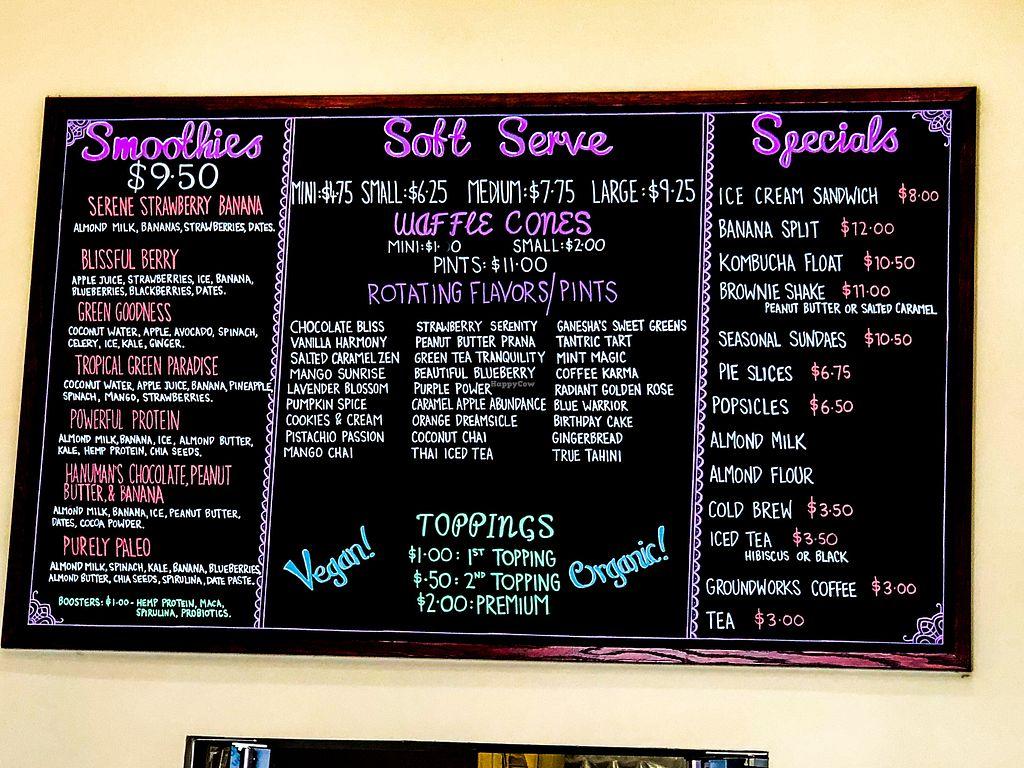 Smoothies
$9.50
SERENE STRAWBERRY BANANA
ALMOND MILK, BANANAS, STRAWBERRIES, DATES.
BLISSFUL BERRY
APPLE JUICE, STRAWBERRIES, ICE, BANANA,
BLUEBERRIES, BLACKBERRIES, DATES.
GREEN GOODNESS
COCONUT WATER, APPLE, AVOCADO, SPINACH,
CELERY, ICE, KALE, GINGER.
TROPICAL GREEN PARADISE
COCONUT WATER, APPLE JUICE, BANANA, PINEAPPLE,
SPINACH, MANGO, STRAWBERRIES.
POWERFUL PROTEIN
ALMOND MILK, BANANA, ICE, ALMOND BUTTER,
KALE, HEMP PROTEIN, CHIA SEEDS.
HANUMAN'S CHOCOLATE, PEANUT
BUTTER, & BANANA
ALMOND MILK, BANANA, ICE, PEANUT BUTTER,
DATES, COCOA POWDER.
PURELY PALEO
ALMOND MILK, SPINACH, KALE, BANANA, BLUEBERRIES,
ALMOND BUTTER, CHIA SEEDS, SPIRULINA, DATE PASTE.
BOOSTERS: $1.00 - HEMP PROTEIN, MACA,
SPIRULINA, PROBIOTICS.
Soft Serve
MINI: $4.75 SMALL: $6.25 MEDIUM: $7.75 LARGE: $9.25
WAFFLE CONES
MINI: SMALL: $2.00
PINTS: $11.00
ROTATING FLAVORS/PINTS
CHOCOLATE BLISS
VANILLA HARMONY
SALTED CARAMEL ZEN
MANGO SUNRISE
LAVENDER BLOSSOM
PUMPKIN SPICE
COOKIES & CREAM
PISTACHIO PASSION
MANGO CHAI
STRAWBERRY SERENITY
PEANUT BUTTER PRANA
GREEN TEA TRANQUILITY
BEAUTIFUL BLUEBERRY
PURPLE POWER
CARAMEL APPLE ABUNDANCE
ORANGE DREAMSICLE
COCONUT CHAI
THAI ICED TEA
GANESHA'S SWEET GREENS
TANTRIC TART
MINT MAGIC
COFFEE KARMA
RADIANT GOLDEN ROSE
BLUE WARRIOR
BIRTHDAY CAKE
GINGERBREAD
TRUE TAHINI
HappyCow
Vegan!
TOPPINGS
$1.00: 1ST TOPPING
$.50: 2ND TOPPING
$2.00: PREMIUM
Organic!
Specials
ICE CREAM SANDWICH $8.00
BANANA SPLIT $12.00
KOMBUCHA FLOAT $10.50
BROWNIE SHAKE $11.00
PEANUT BUTTER OR SALTED CARAMEL
SEASONAL SUNDAES $10.50
PIE SLICES $6.75
POPSICLES $6.50
ALMOND MILK
ALMOND FLOUR
COLD BREW $3.50
ICED TEA $3.50
HIBISCUS OR BLACK
GROUNDWORKS COFFEE $3.00
TEA $3.00